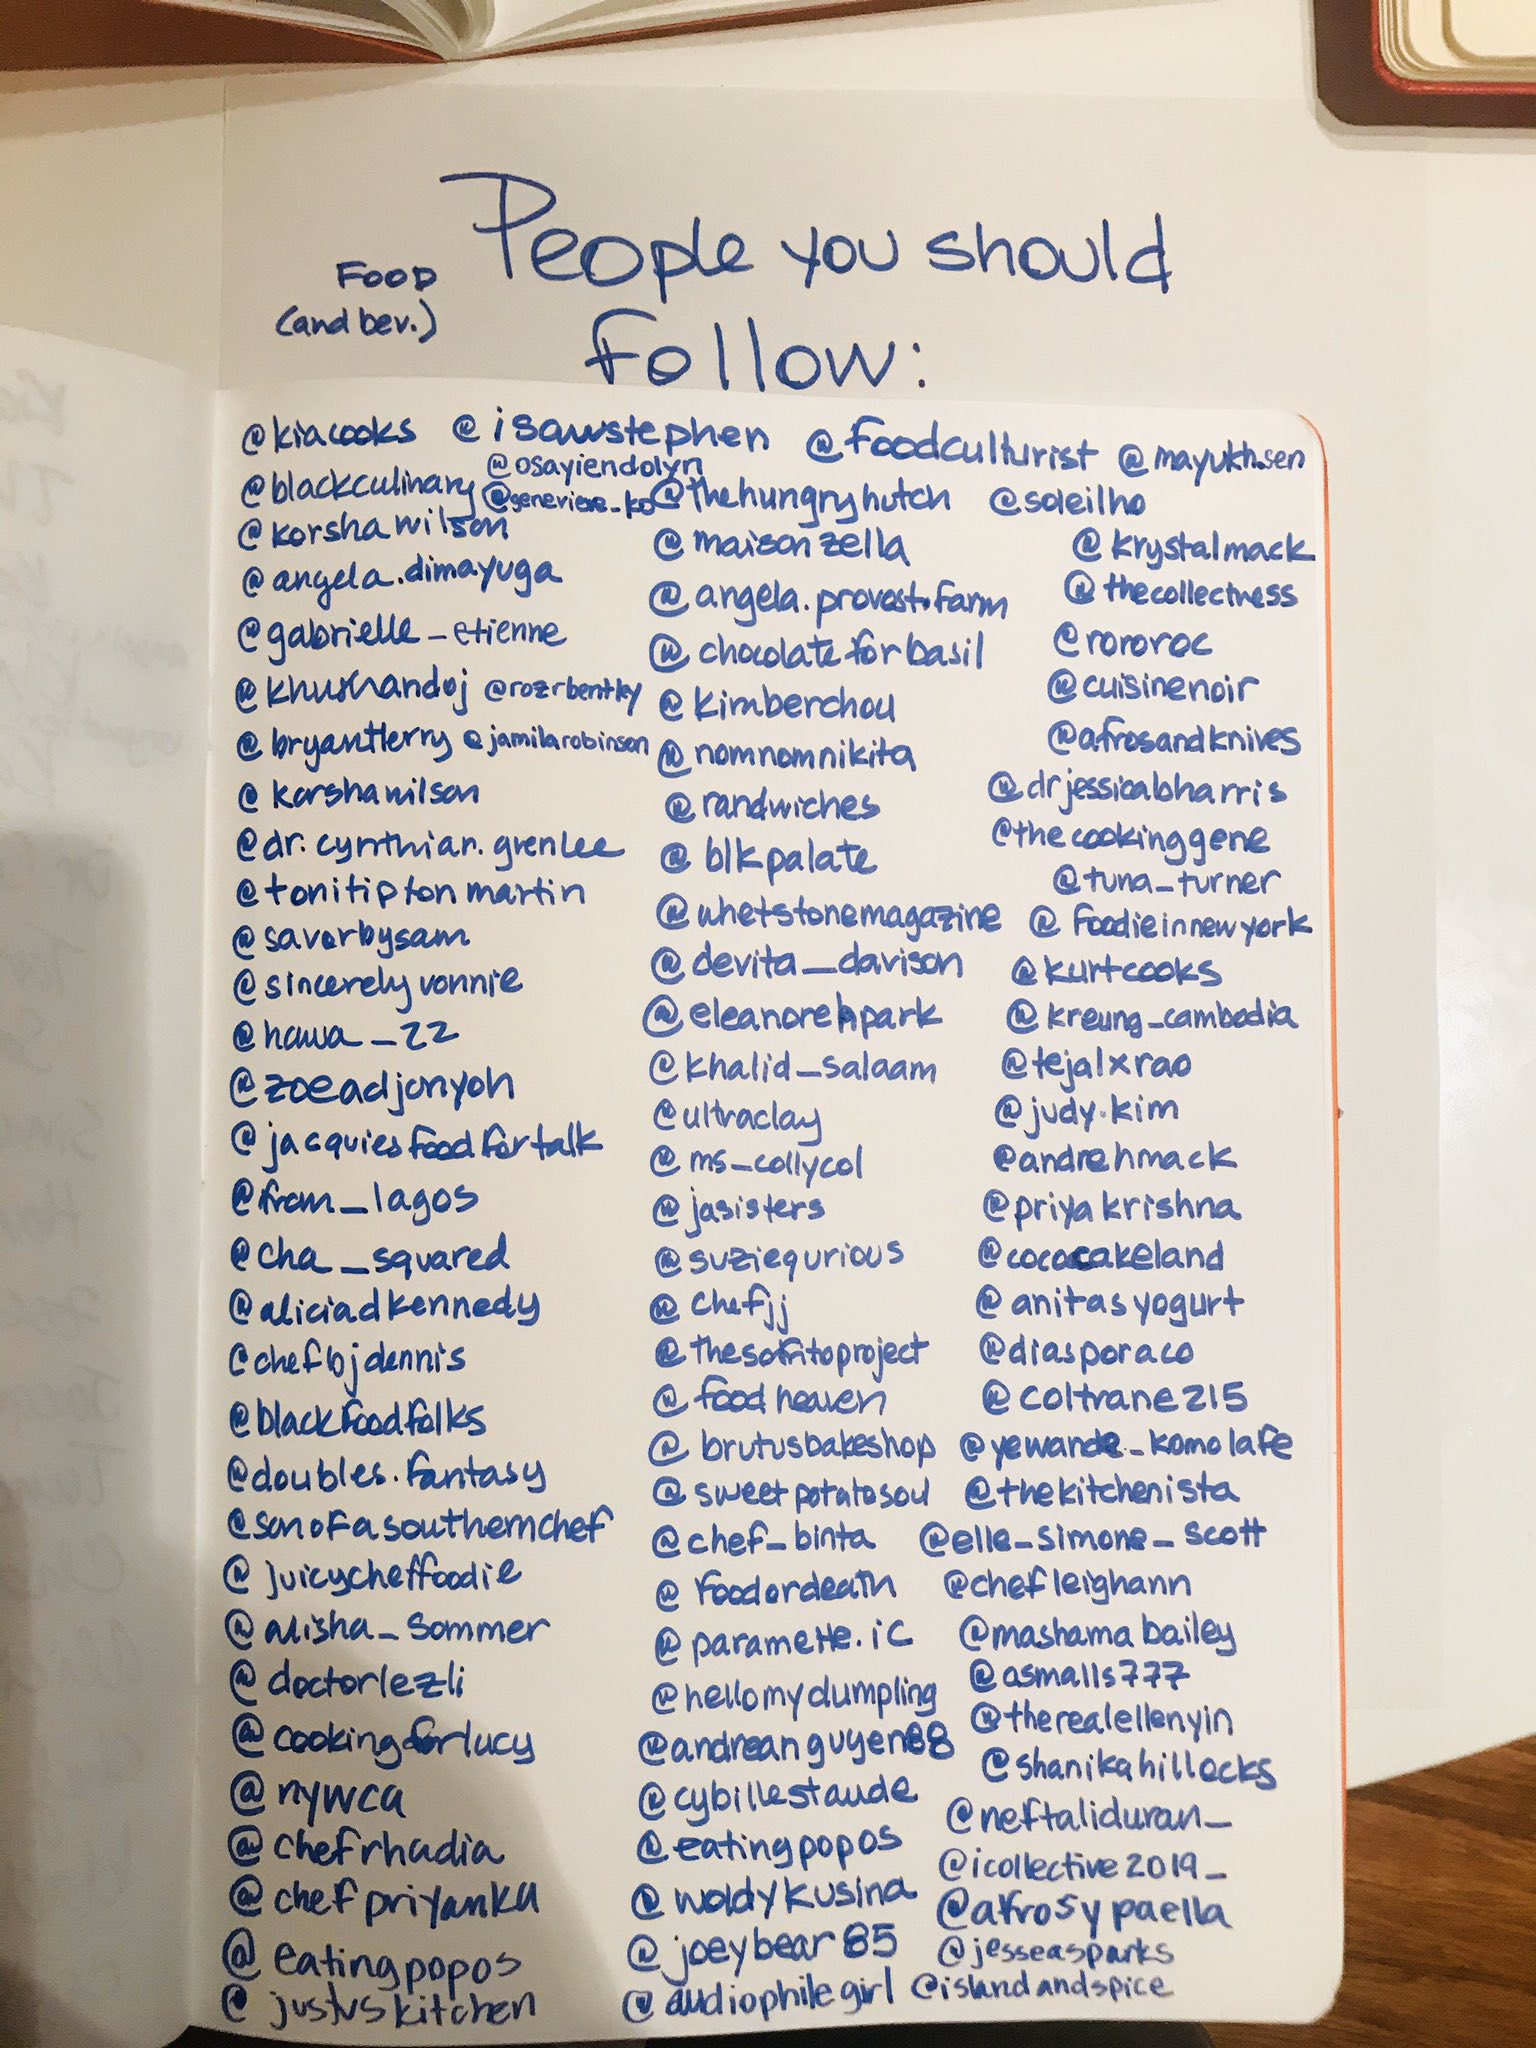 Food
(and bev.)
People you should
follow:
@kiacooks @isawstephen @foodculturist @mayukh.sen
@blackculinary @osayiendolyn @thehungryhutch @soleilho
@genevieve_ko
@korshawilson
@angela.dimayuga
@gabrielle_etienne
@khushandoj @rozrbentley
@bryantterry @jamilarobinson
@korshawilson
@dr.cynthian.grenlee
@tonitiptonmartin
@savorbysam
@sincerelyvonnie
@hawa_22
@zoeadjonyoh
@jacquiesfoodfortalk
@from_lagos
@cha_squared
@aliciadkennedy
@chefbjdennis
@blackfoodfolks
@doubles.fantasy
@sonofasouthernchef
@juicycheffoodie
@alisha_sommer
@doctorlezli
@cookingforlucy
@nywca
@chefrhadia
@chefpriyanka
@eatingpopos
@justuskitchen
@maisonzella
@angela.provost.farm
@chocolateforbasil
@kimberchou
@nomnomnikita
@randwiches
@blkpalate
@whetstonemagazine
@devita_davison
@eleanorehpark
@khalid_salaam
@ultraclay
@ms_collycol
@jasisters
@suziequrious
@chefjj
@thesofritoproject
@foodheaven
@brutusbakeshop
@sweetpotatosoul
@chef_binta
@foodordeath
@paramette.ic
@hellomydumpling
@andreanguyen88
@cybillestaude
@eatingpopos
@woldykusina
@joeybear85
@audiophilegirl
@krystalmack
@thecollectress
@rororoc
@cuisinenoir
@afrosandknives
@drjessicabharris
@thecookinggene
@tuna_turner
@foodieinnewyork
@kurtcooks
@kreung_cambodia
@tejalxrao
@judy.kim
@andrehmack
@priyakrishna
@cococakeland
@anitasyogurt
@diasporaco
@coltrane215
@yewande_komolafe
@thekitchenista
@elle_simone_scott
@chefleighann
@mashamabailey
@asmalls777
@therealellenyin
@shanikahillocks
@neftaliduran_
@icollective2019_
@afrosypaella
@jesseasparks
@islandandspice